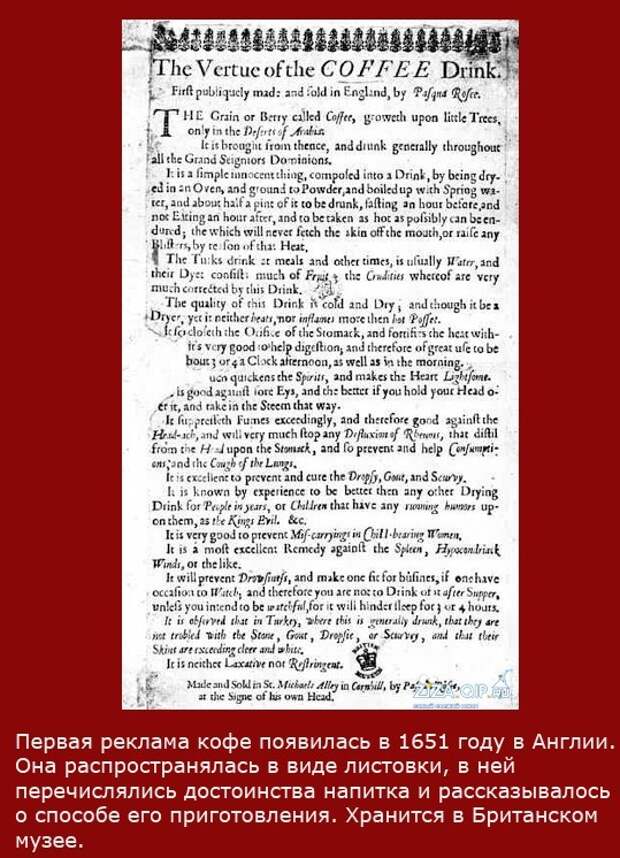 The Vertue of the COFFEE Drink.
First publiquely made and sold in England, by Pasqua Rosee.
THE Grain or Berry called Coffee, groweth upon little Trees,
only in the Deserts of Arabia.
It is brought from thence, and drunk generally throughout
all the Grand Seigniors Dominions.
It is a simple innocent thing, composed into a Drink, by being dry-
ed in an Oven, and ground to Powder, and boiled up with Spring wa-
ter, and about half a pint of it to be drunk, fasting an hour before, and
not Eating an hour after, and to be taken as hot as possibly can be en-
dured; the which will never fetch the skin off the mouth, or raise any
Blisters, by reason of that Heat.
The Turks drink at meals and other times, is usually Water, and
their Dyet consists much of Fruit, the Crudities whereof are very
much corrected by this Drink.
The quality of this Drink is cold and Dry; and though it be a
Dryer, yet it neither heats, nor inflames more then hot Posset.
It so closeth the Orifice of the Stomack, and fortifies the heat with-
it's very good to help digestion, and therefore of great use to be
bout 3 or 4 a Clock afternoon, as well as in the morning.
uch quickens the Spirits, and makes the Heart Lightsome.
is good against sore Eys, and the better if you hold your Head o-
er it, and take in the Steem that way.
It suppresseth Fumes exceedingly, and therefore good against the
Head-ach, and will very much stop any Defluxion of Rheums, that distil
from the Head upon the Stomack, and so prevent and help Consumpti-
ons; and the Cough of the Lungs.
It is excellent to prevent and cure the Dropsy, Gout, and Scurvy.
It is known by experience to be better then any other Drying
Drink for People in years, or Children that have any running humors up-
on them, as the Kings Evil. &c.
It is very good to prevent Mis-carryings in Child-bearing Women.
It is a most excellent Remedy against the Spleen, Hypocondriack
Winds, or the like.
It will prevent Drowsiness, and make one fit for busines, if one have
occasion to Watch, and therefore you are not to Drink of it after Supper,
unless you intend to be watchful, for it will hinder sleep for 3 or 4 hours.
It is observed that in Turkey, where this is generally drunk, that they are
not trobled with the Stone, Gout, Dropsie, or Scurvey, and that their
Skins are exceeding cleer and white.
It is neither Laxative nor Restringent.
BRITISH MUSEUM
Made and Sold in St. Michaels Alley in Cornhill, by Pasqua Rosee,
at the Signe of his own Head.
ZIZA.QIP.RU
Первая реклама кофе появилась в 1651 году в Англии.
Она распространялась в виде листовки, в ней
перечислялись достоинства напитка и рассказывалось
о способе его приготовления. Хранится в Британском
музее.